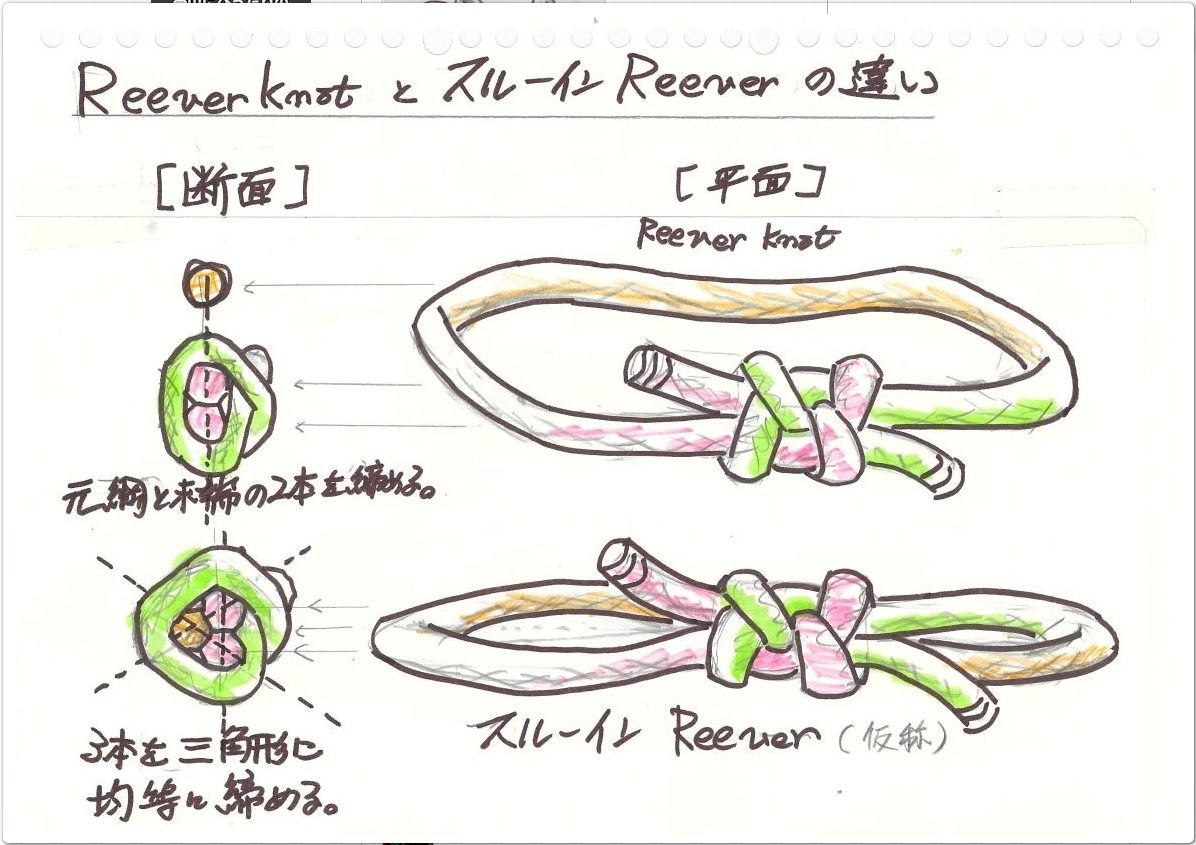 Reever knot と スルーイン Reever の違い
[断面]
[平面]
Reever knot
元綱と末端の2本を締める。
3本を三角形に
均等に締める。
スルーイン Reever (仮称)